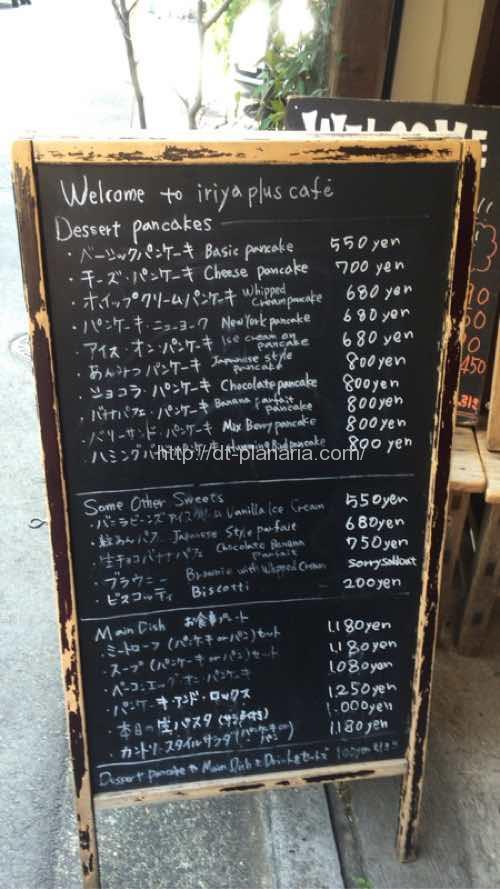 WELCOME
Welcome to iriya plus café
Dessert pancakes
・ベーシックパンケーキ Basic pancake 550 yen
・チーズ・パンケーキ Cheese pancake 700 yen
・ホイップクリームパンケーキ Whipped Cream pancake 680 yen
・パンケーキ・ニューヨーク New York pancake 680 yen
・アイス・オン・パンケーキ Ice cream on pancake 680 yen
・あんみつパンケーキ Japanese style pancake 800 yen
・ショコラ・パンケーキ Chocolate pancake 800 yen
・バナナパフェ・パンケーキ Banana Parfait pancake 800 yen
・ベリーサンド・パンケーキ Mix Berry pancake 800 yen
・ハミングバード Humming Bird pancake 800 yen
http://dt-planaria.com/
Some Other Sweets
・バニラビーンズアイスクリーム Vanilla Ice Cream 550 yen
パフェ Japanese Style parfait 680 yen
・生チョコバナナパフェ Chocolate Banana parfait 750 yen
・ブラウニー Brownie with Whipped Cream sorry soldout
・ビスコッティ Biscotti 200 yen
Main Dish お食事プレート
・ミートローフ(パンケーキorパン)セット 1,180 yen
・スープ(パンケーキorパン)セット 1,180 yen
・ベーコンエッグ・オン・パンケーキ 1,080 yen
・パンケーキ・アンド・ロックス 1,250 yen
・本日の生パスタ(サラダ付き) 1,000 yen
・カントリースタイルサラダ(パンケーキorパン) 1,180 yen
Dessert pancake や Main Dish と Drink をセットで 100yen